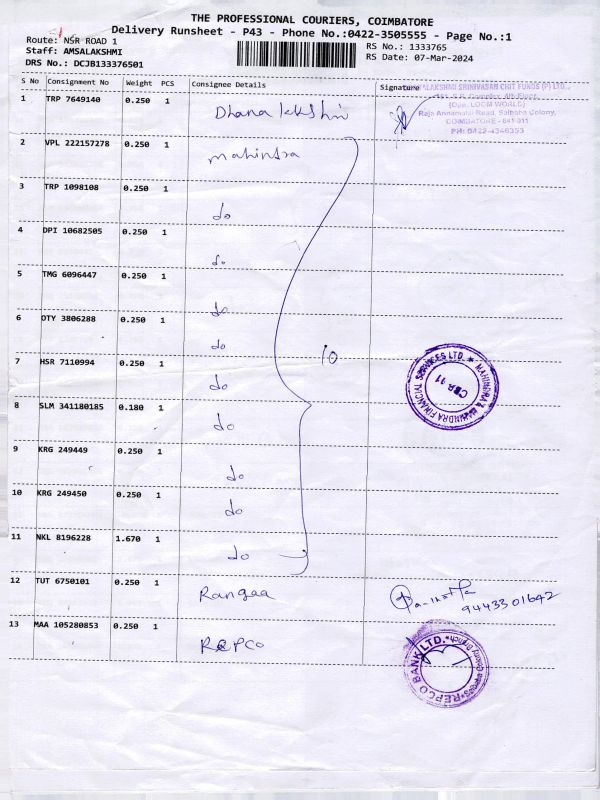 THE PROFESSIONAL COURIERS, COIMBATORE
Delivery Runsheet - P43 - Phone No.:0422-3505555 - Page No.:1
Route: NSR ROAD 1
Staff: AMSALAKSHMI
DRS No.: DCJB133376501
RS No.: 1333765
RS Date: 07-Mar-2024
S No Consignment No Weight PCS Consignee Details Signature
LAKSHMI SRINIVASAN CHIT FUNDS (P) LTD.,
(Opp. LOOM WORLD)
Raja Annamalai Road, Saibaba Colony,
COIMBATORE - 641 011
PH: 0422-4346353
1 TRP 7649140 0.250 1 Dhana lakshmi
2 VPL 222157278 0.250 1 mahindra
3 TRP 1098108 0.250 1 do
4 DPI 10682505 0.250 1 do
5 TMG 6096447 0.250 1 do
6 OTY 3806288 0.250 1 do
10
7 HSR 7110994 0.250 1 do
MAHINDRA & MAHINDRA FINANCIAL SERVICES LTD.
CBA 11
8 SLM 341180185 0.180 1 do
9 KRG 249449 0.250 1 do
10 KRG 249450 0.250 1 do
11 NKL 8196228 1.670 1 do
12 TUT 6750101 0.250 1 Rangaa
9443301642
13 MAA 105280853 0.250 1 REPCO
REPCO BANK LTD.